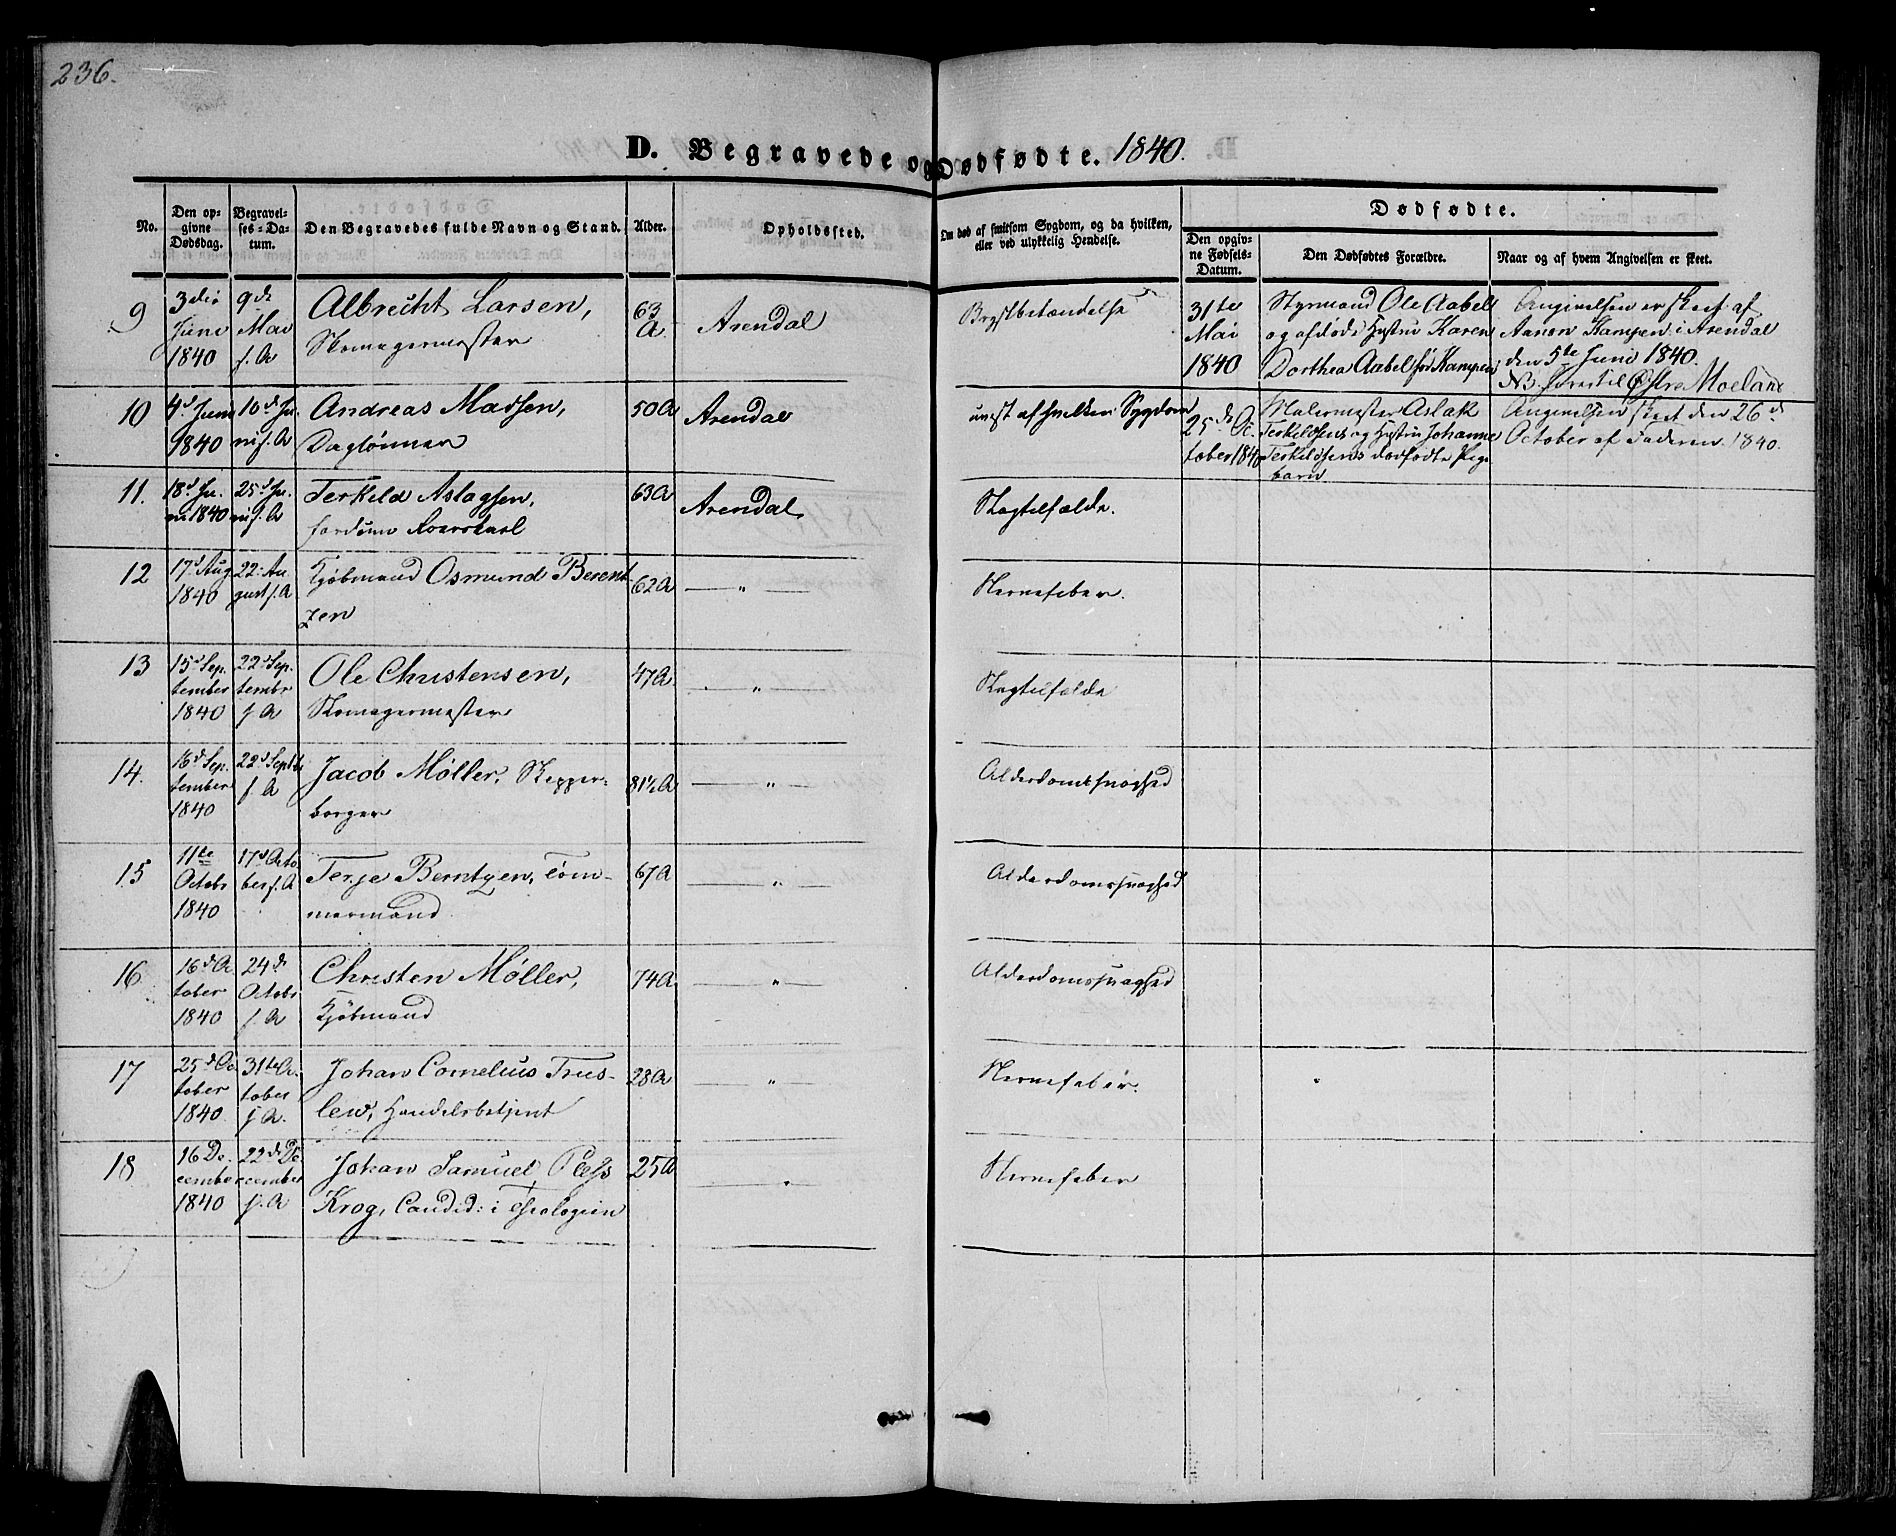 236.
D. Begravede og Dødfødte. 1840.
No.
Den opgivne Dødsdag.
Begravelses-Datum.
Den Begravedes fulde Navn og Stand.
Alder.
Opholdssted.
Om død af smitsom Sygdom, og da hvilken,
eller ved ulykkelig Hendelse.
Dødfødte.
Den opgivne Fødsels-Datum.
Den Dødfødtes Forældre.
Naar og af hvem Angivelsen er skeet.
9
3die
Juni
1840
9de
Mai
s. A
Albrecht Larsen,
Skomagermester
63
A.
Arendal
Brystbetændelse
31te
Mai
1840
Styrmand Ole Aabel
og afdøde Hustru Karen
Dorthea Aabel fød Kampen
Angivelsen er skeet af
Aanon Kampen i Arendal
den 5te Juni 1840.
NB. Øster Moeland
10
4d Juni
1840
10d Ju-
ni s. A
Andreas Madsen,
Daglønner
50 A
Arendal
af hvilken Sygdom
25de Oc-
tober 1840
Malermester Aslak
Terkildsens og Hustru Johanne
Terkildsens dødfødte Pige-
barn
Angivelsen skeet den 26d
October af Faderen 1840.
11.
18d Ju-
ni 1840
25d Ju-
ni s. A
Terkild Aslagsen,
fordum
63 A
Arendal
Slagtilfælde.
12
17d Aug
1840
22 Au
gust s. A
Kjøbmand Osmund Berent
zen
62 A
— " —
Nervefeber.
13
15d Sep.
tember
1840
22d Sep
tembr
s. A
Ole Christensen,
Skomagermester
47 A
— " —
Slagtilfælde
14.
16d Sep.
tember
1840
22d Septbr
s. A
Jacob Møller, Skipper-
borger
81½ A
— " —
Alderdomssvaghed
15
11te
Octobr
1840
17d Octo
ber s. A
Terje Berntzen, Tøm-
mermand
67 A
— " —
Alderdomssvaghed
16
16d Oc
tober
1840
24de
Octobr
s. A
Christen Møller,
Kjøbmand
74 A
— " —
Alderdomssvaghed
17
25d Oc
tober
1840
31te Oc-
tober
s. A.
Johan Cornelius Trus-
lew, Handelsbetjent
28 A
— " —
Nervefeber.
18
16 De-
cember
1840
22de De-
cember
s. A
Johan Samuel
Krog, Candid: i Theologien
25 A
"
Nervefeber